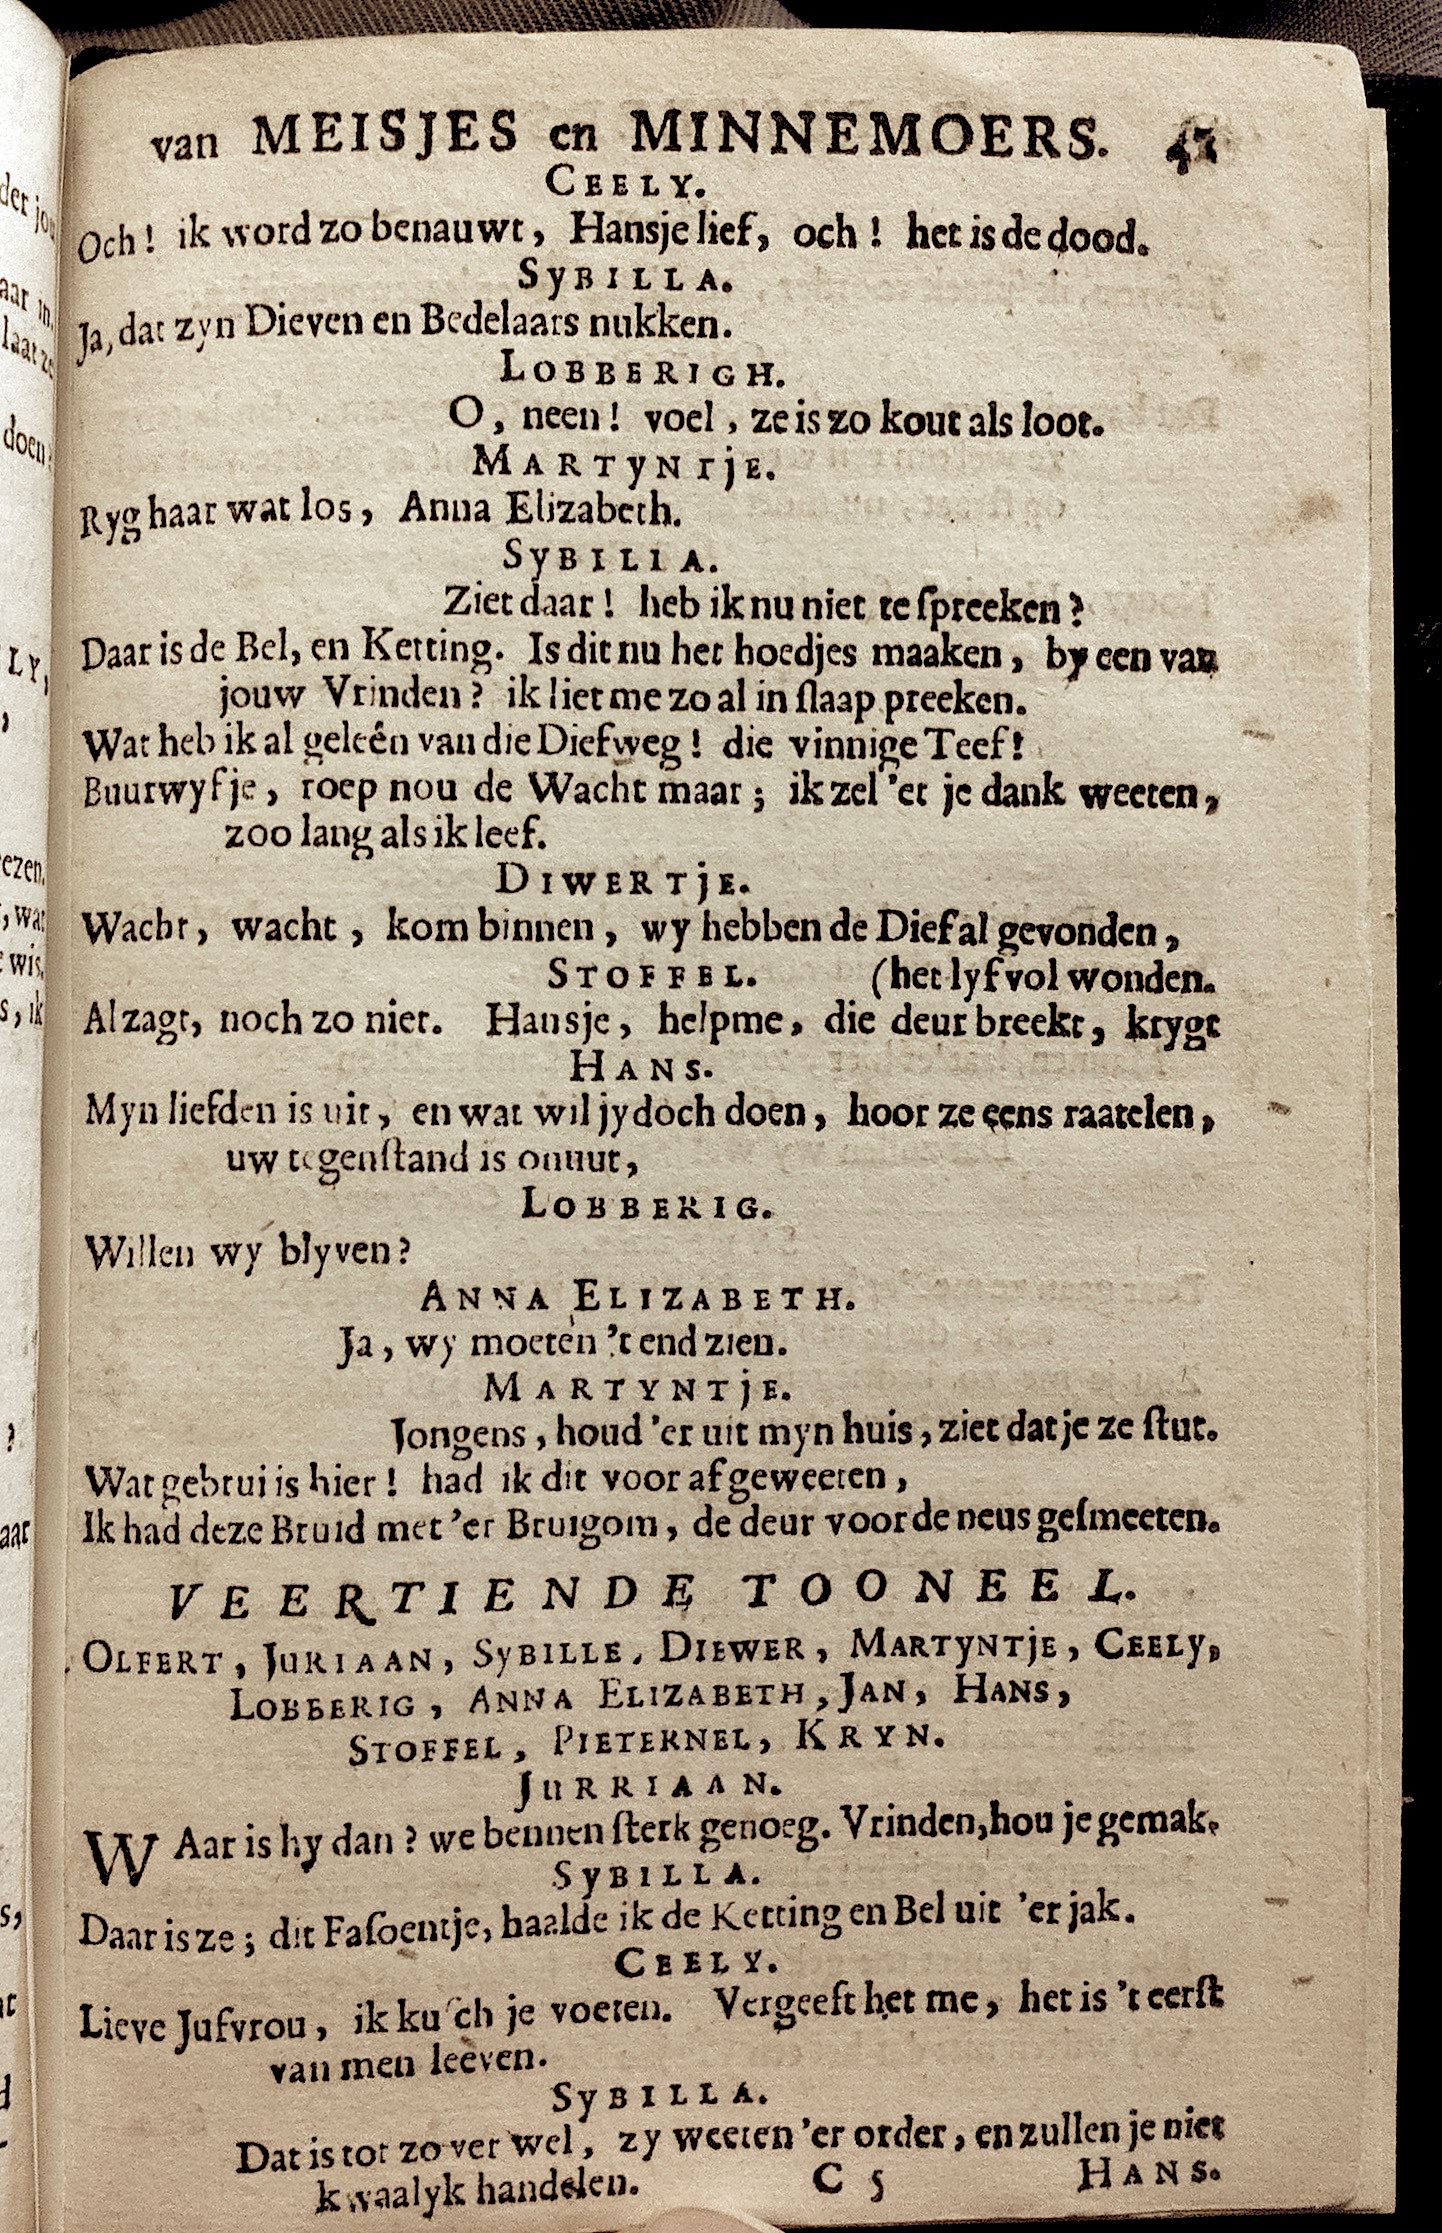 van MEISJES en MINNEMOERS. 47
CEELY.
Och! ik word zo benauwt, Hansje lief, och! het is de dood.
SyBILLA.
Ja, dat zyn Dieven en Bedelaars nukken.
LOBBERIGH.
O, neen! voel, ze is zo kout als loot.
MARTyNTjE.
Ryg haar wat los, Anna Elizabeth.
SyBILIA.
Ziet daar! heb ik nu niet te ſpreeken?
Daar is de Bel, en Ketting. Is dit nu het hoedjes maaken, by een van
jouw Vrinden? ik liet me zo al in ſlaap preeken.
Wat heb ik al geleên van die Diefweg! die vinnige Teef!
Buurwyfje, roep nou de Wacht maar; ik zel 'et je dank weeten,
zoo lang als ik leef.
DIWERTjE.
Wacht, wacht, kom binnen, wy hebben de Dief al gevonden,
STOFFEL. (het lyf vol wonden.
Al zagt, noch zo niet. Hansje, help me, die deur breekt, krygt
HANS.
Myn liefden is uit, en wat wil jy doch doen, hoor ze eens raatelen,
uw tegenſtand is onnut,
LOBBERIG.
Willen wy blyven?
ANNA ELIZABETH.
Ja, wy moeten 't end zien.
MARTYNTjE.
Jongens, houd 'er uit myn huis, ziet dat je ze ſtut.
Wat gebrui is hier! had ik dit voor af geweeten,
Ik had deze Bruid met 'er Bruigom, de deur voor de neus geſmeeten.
VEERTIENDE TOONEEL.
OLFERT, JURIAAN, SyBILLE, DIEWER, MARTyNTjE, CEELy,
LOBBERIG, ANNA ELIZABETH, JAN, HANS,
STOFFEL, PIETERNEL, KRYN.
JURRIAAN.
WAar is hy dan? we bennen ſterk genoeg. Vrinden, hou je gemak.
SyBILLA.
Daar is ze; dit Faſoentje, haalde ik de Ketting en Bel uit 'er jak.
CEELY.
Lieve Jufvrou, ik kuſch je voeten. Vergeeft het me, het is 't eerſt
van men leeven.
SyBILLA.
Dat is tot zo ver wel, zy weeten 'er order, en zullen je niet
kwaalyk handelen. C 5 HANS.